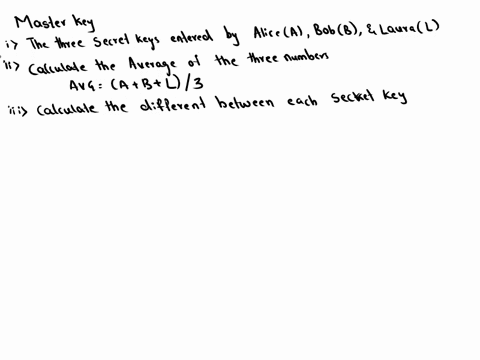 Master Key
i> The three secret keys entered by Alice(A), Bob(B), & Laura(L)
ii> Calculate the Average of the three numbers
AVG: (A+B+L)/3
iii> Calculate the different between each secret key